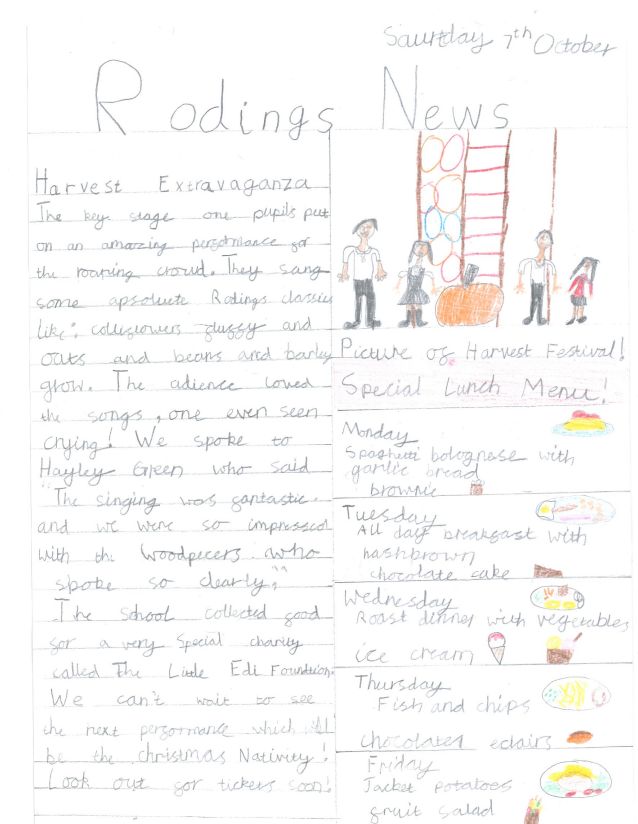 Saurtday 7th October
Rodings News
Harvest Extravaganza
The key stage one pupils put
on an amazing performance for
the roaring crowd. They sang
some apsolute Rodings classics
like: colliyflowers fluffy and
oats and beans and barley
grow. The adience loved
the songs, one even seen
crying! We spoke to
Hayley Green who said
"The singing was fantastic
and we were so impressed
with the Woodpecers who
spoke so clearly."
The school collected food
for a very special charity
called The Little Edi Foundtion.
We can't wait to see
the next performance which will
be the christmas Nativity!
Look out for tickers soon!
Picture of Harvest Festival!
Special Lunch Menu!
Monday
Spaghetti bolognase with
garlic bread
brownie
Tuesday
All day breakfast with
hashbrown
chocolate cake
Wednesday
Roast dinner with vegetables
ice cream
Thursday
Fish and chips
chocolated eclairs
Friday
Jacket potatoes
fruit salad